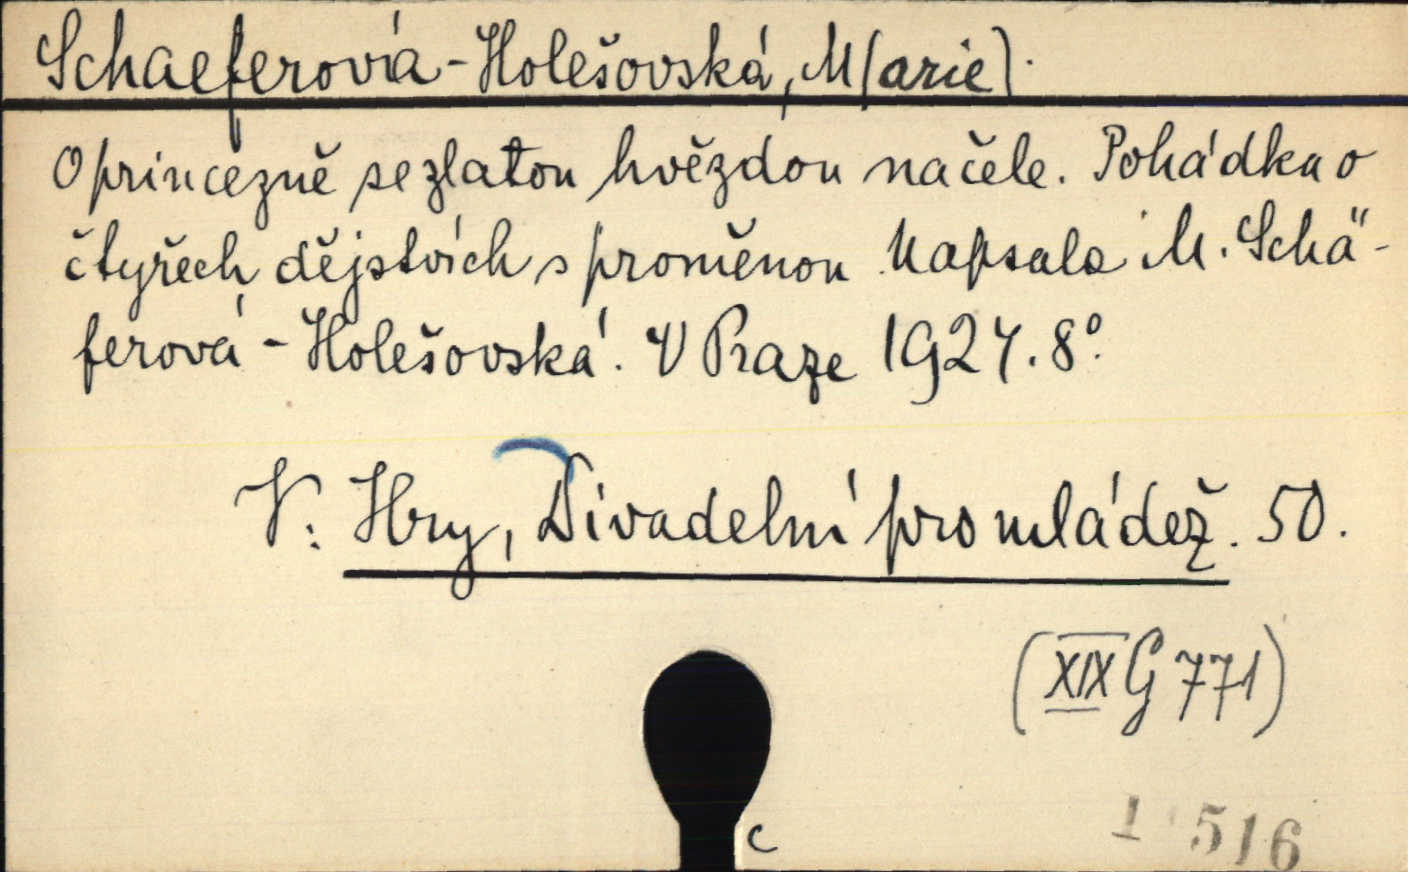 Schaeferová-Holešovská, M(arie).
O princezně se zlatou hvězdou na čele. Pohádka o
čtyřech dějstvích s proměnou. Napsala M. Schä-
ferová-Holešovská. V Praze 1927. 8°.
V: Hry, Divadelní pro mládež. 50.
(XIX G 771)
c
1 516